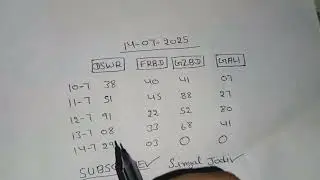 14-07-2025
DSWR FRBD GZBD GALI
10-7 38 40 41 07
11-7 51 45 88 27
12-7 91 22 52 80
13-7 08 33 68 41
14-7 29 03 0 0
Singal Jodi